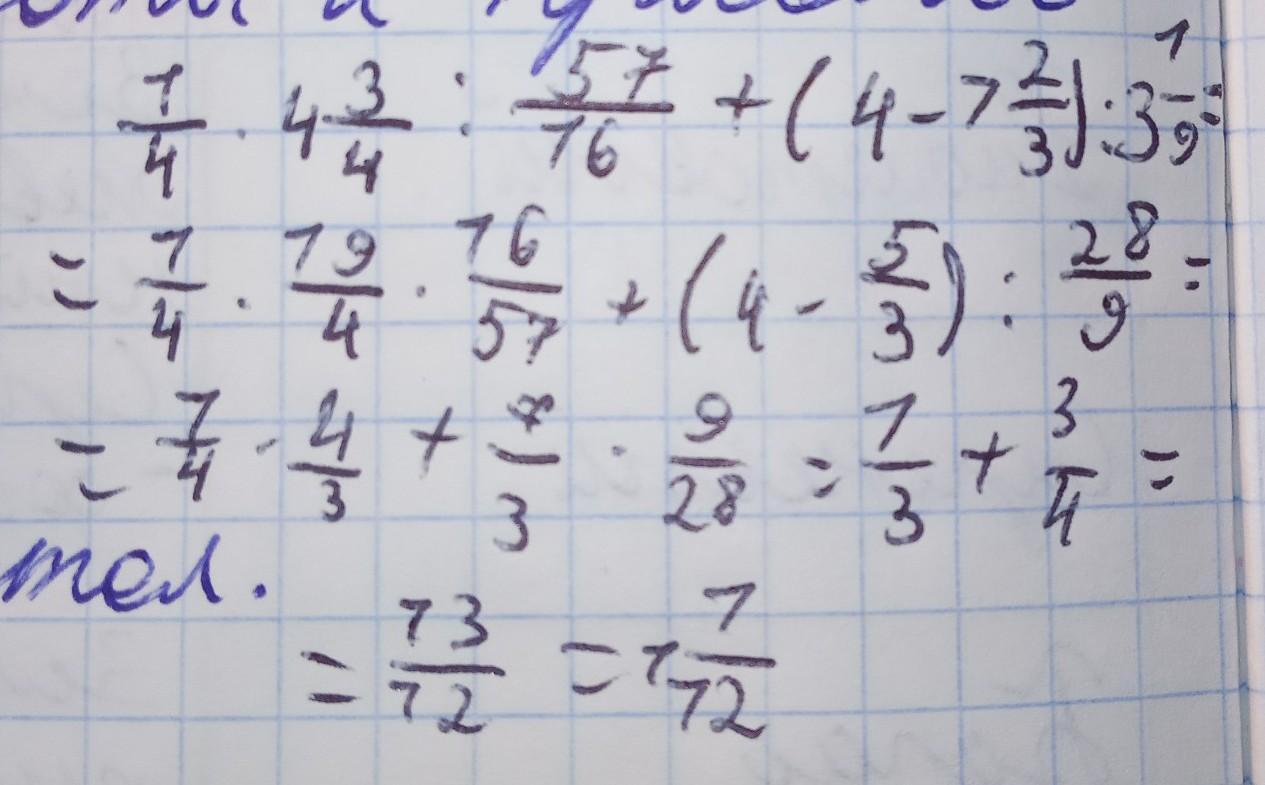 1/4 · 4 3/4 : 57/16 + (4 - 1 2/3) : 3 1/9 =
= 1/4 · 19/4 · 16/57 + (4 - 5/3) : 28/9 =
= 1/4 · 4/3 + 7/3 · 9/28 = 1/3 + 3/4 =
тел.
= 13/12 = 1 1/12